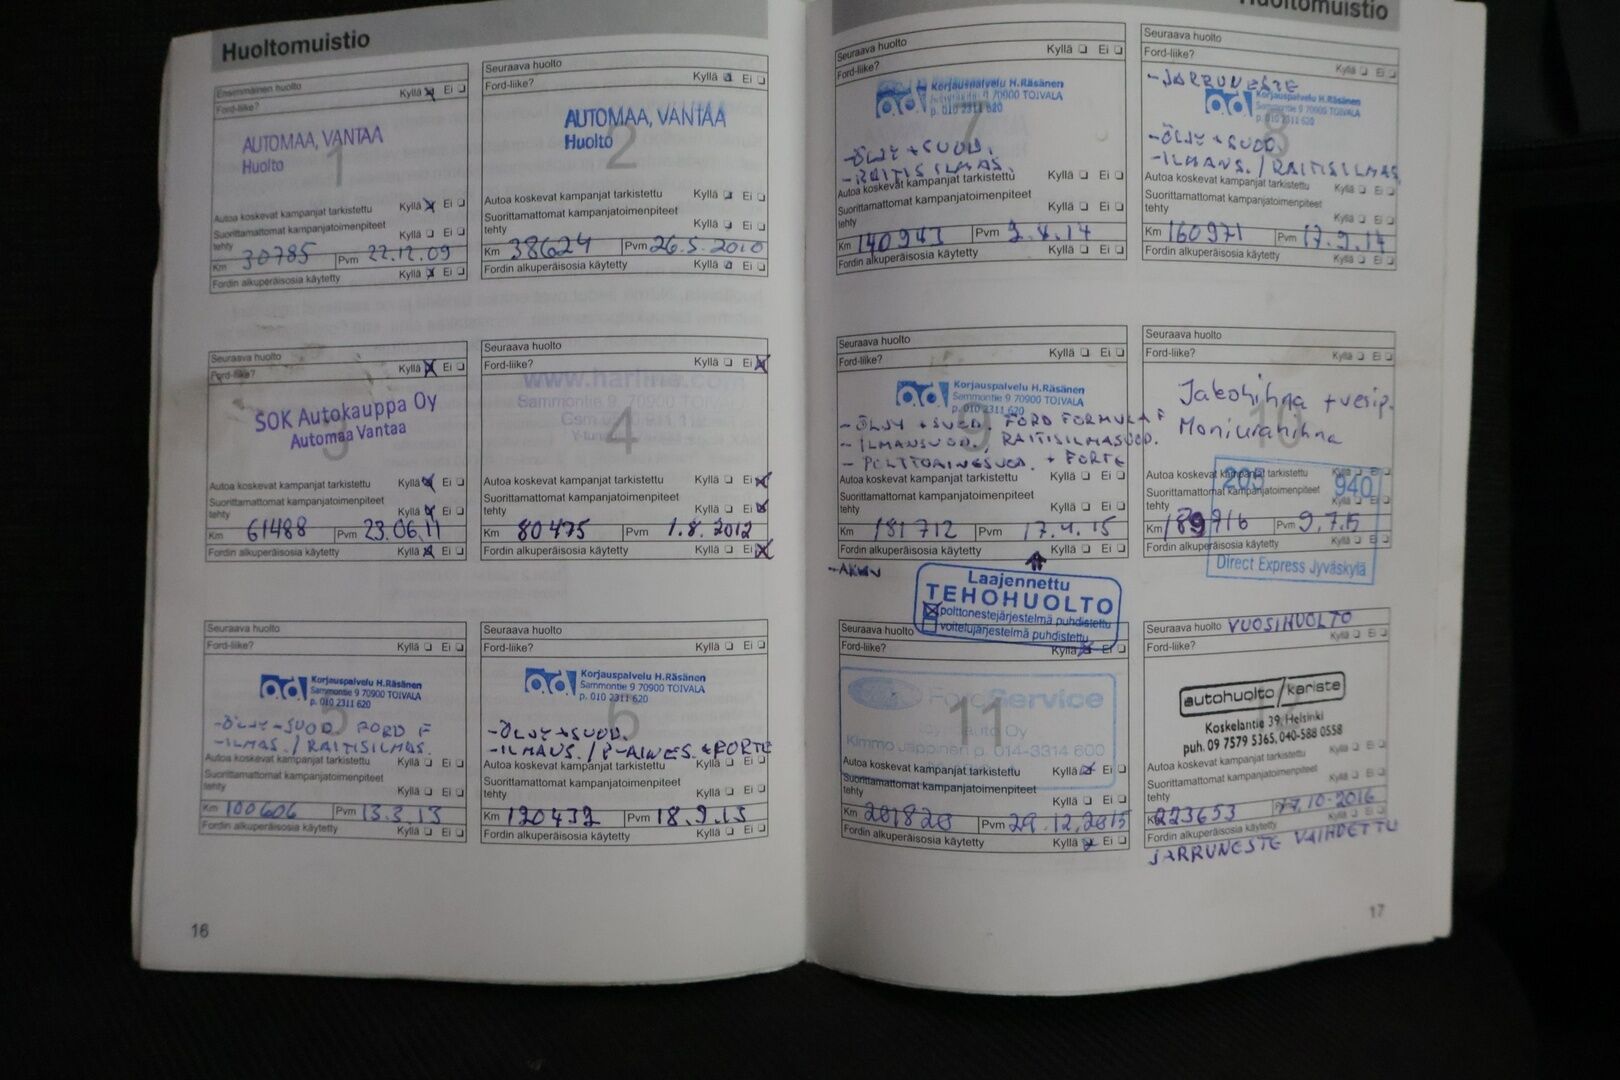 Huoltomuistio
Ensimmäinen huolto
Ford-liike? Kyllä Ei
1
AUTOMAA, VANTAA
Huolto
Autoa koskevat kampanjat tarkistettu Kyllä Ei
Suorittamattomat kampanjatoimenpiteet
tehty Kyllä Ei
Km 30785 Pvm 22.12.09
Fordin alkuperäisosia käytetty Kyllä Ei
Seuraava huolto
Ford-liike? Kyllä Ei
2
AUTOMAA, VANTAA
Huolto
Autoa koskevat kampanjat tarkistettu Kyllä Ei
Suorittamattomat kampanjatoimenpiteet
tehty Kyllä Ei
Km 38624 Pvm 26.5.2010
Fordin alkuperäisosia käytetty Kyllä Ei
Seuraava huolto
Ford-liike? Kyllä Ei
3
SOK Autokauppa Oy
Automaa Vantaa
Autoa koskevat kampanjat tarkistettu Kyllä Ei
Suorittamattomat kampanjatoimenpiteet
tehty Kyllä Ei
Km 61488 Pvm 23.06.11
Fordin alkuperäisosia käytetty Kyllä Ei
Seuraava huolto
Ford-liike? Kyllä Ei
4
Sammontie 9, 70900 TOIVALA
Autoa koskevat kampanjat tarkistettu Kyllä Ei
Suorittamattomat kampanjatoimenpiteet
tehty Kyllä Ei
Km 80475 Pvm 1.8.2012
Fordin alkuperäisosia käytetty Kyllä Ei
Seuraava huolto
Ford-liike? Kyllä Ei
5
a.d. Korjauspalvelu H.Räsänen
Sammontie 9 70900 TOIVALA
p. 010 2311 620
-ÖLJY+SUOD FORD F
-ILMAS./RAITISILMAS.
Autoa koskevat kampanjat tarkistettu Kyllä Ei
Suorittamattomat kampanjatoimenpiteet
tehty Kyllä Ei
Km 100606 Pvm 13.3.13
Fordin alkuperäisosia käytetty Kyllä Ei
Seuraava huolto
Ford-liike? Kyllä Ei
6
a.d. Korjauspalvelu H.Räsänen
Sammontie 9 70900 TOIVALA
p. 010 2311 620
-ÖLJY+SUOD.
-ILMANS./P-AINES.+FORTE
Autoa koskevat kampanjat tarkistettu Kyllä Ei
Suorittamattomat kampanjatoimenpiteet
tehty Kyllä Ei
Km 120432 Pvm 18.9.13
Fordin alkuperäisosia käytetty Kyllä Ei
16
Huoltomuistio
Seuraava huolto
Ford-liike? Kyllä Ei
7
a.d. Korjauspalvelu H.Räsänen
Sammontie 9 70900 TOIVALA
p. 010 2311 620
-ÖLJY+SUOD.
-RAITISILMAS.
Autoa koskevat kampanjat tarkistettu Kyllä Ei
Suorittamattomat kampanjatoimenpiteet
tehty Kyllä Ei
Km 140943 Pvm 2.4.14
Fordin alkuperäisosia käytetty Kyllä Ei
Seuraava huolto
Ford-liike? Kyllä Ei
-JARRUNESTE
8
a.d. Korjauspalvelu H.Räsänen
Sammontie 9 70900 TOIVALA
p. 010 2311 620
-ÖLJY+SUOD.
-ILMANS./RAITISILMAS
Autoa koskevat kampanjat tarkistettu Kyllä Ei
Suorittamattomat kampanjatoimenpiteet
tehty Kyllä Ei
Km 160971 Pvm 17.9.14
Fordin alkuperäisosia käytetty Kyllä Ei
Seuraava huolto
Ford-liike? Kyllä Ei
9
a.d. Korjauspalvelu H.Räsänen
Sammontie 9 70900 TOIVALA
p. 010 2311 620
-ÖLJY+SUOD. FORD FORMULA F
-ILMANSUOD, RAITISILMASUOD.
-POLTTOAINESUOD. + FORTE
Autoa koskevat kampanjat tarkistettu Kyllä Ei
Suorittamattomat kampanjatoimenpiteet
tehty Kyllä Ei
Km 181712 Pvm 17.4.15
Fordin alkuperäisosia käytetty Kyllä Ei
-AKKU
Laajennettu
TEHOHUOLTO
polttonestejärjestelmä puhdistettu
voitelujärjestelmä puhdistettu
Seuraava huolto
Ford-liike? Kyllä Ei
10
Jakohihna + vesip.
Moniurahihna
Autoa koskevat kampanjat tarkistettu Kyllä Ei
Suorittamattomat kampanjatoimenpiteet
tehty Kyllä Ei
203 940
Km 189716 Pvm 9.7.15
Fordin alkuperäisosia käytetty Kyllä Ei
Direct Express Jyväskylä
Seuraava huolto
Ford-liike? Kyllä Ei
11
Ford Service
Autoa koskevat kampanjat tarkistettu Kyllä Ei
Suorittamattomat kampanjatoimenpiteet
tehty Kyllä Ei
Km 201820 Pvm 29.12.2015
Fordin alkuperäisosia käytetty Kyllä Ei
Seuraava huolto VUOSIHUOLTO
Ford-liike? Kyllä Ei
autohuolto/kariste
Koskelantie 39, Helsinki
puh. 09 7579 5365, 040-588 0558
Autoa koskevat kampanjat tarkistettu Kyllä Ei
Suorittamattomat kampanjatoimenpiteet
tehty Kyllä Ei
Km 223653 10-2016
Fordin alkuperäisosia käytetty Kyllä Ei
JARRUNESTE VAIHDETTU
17